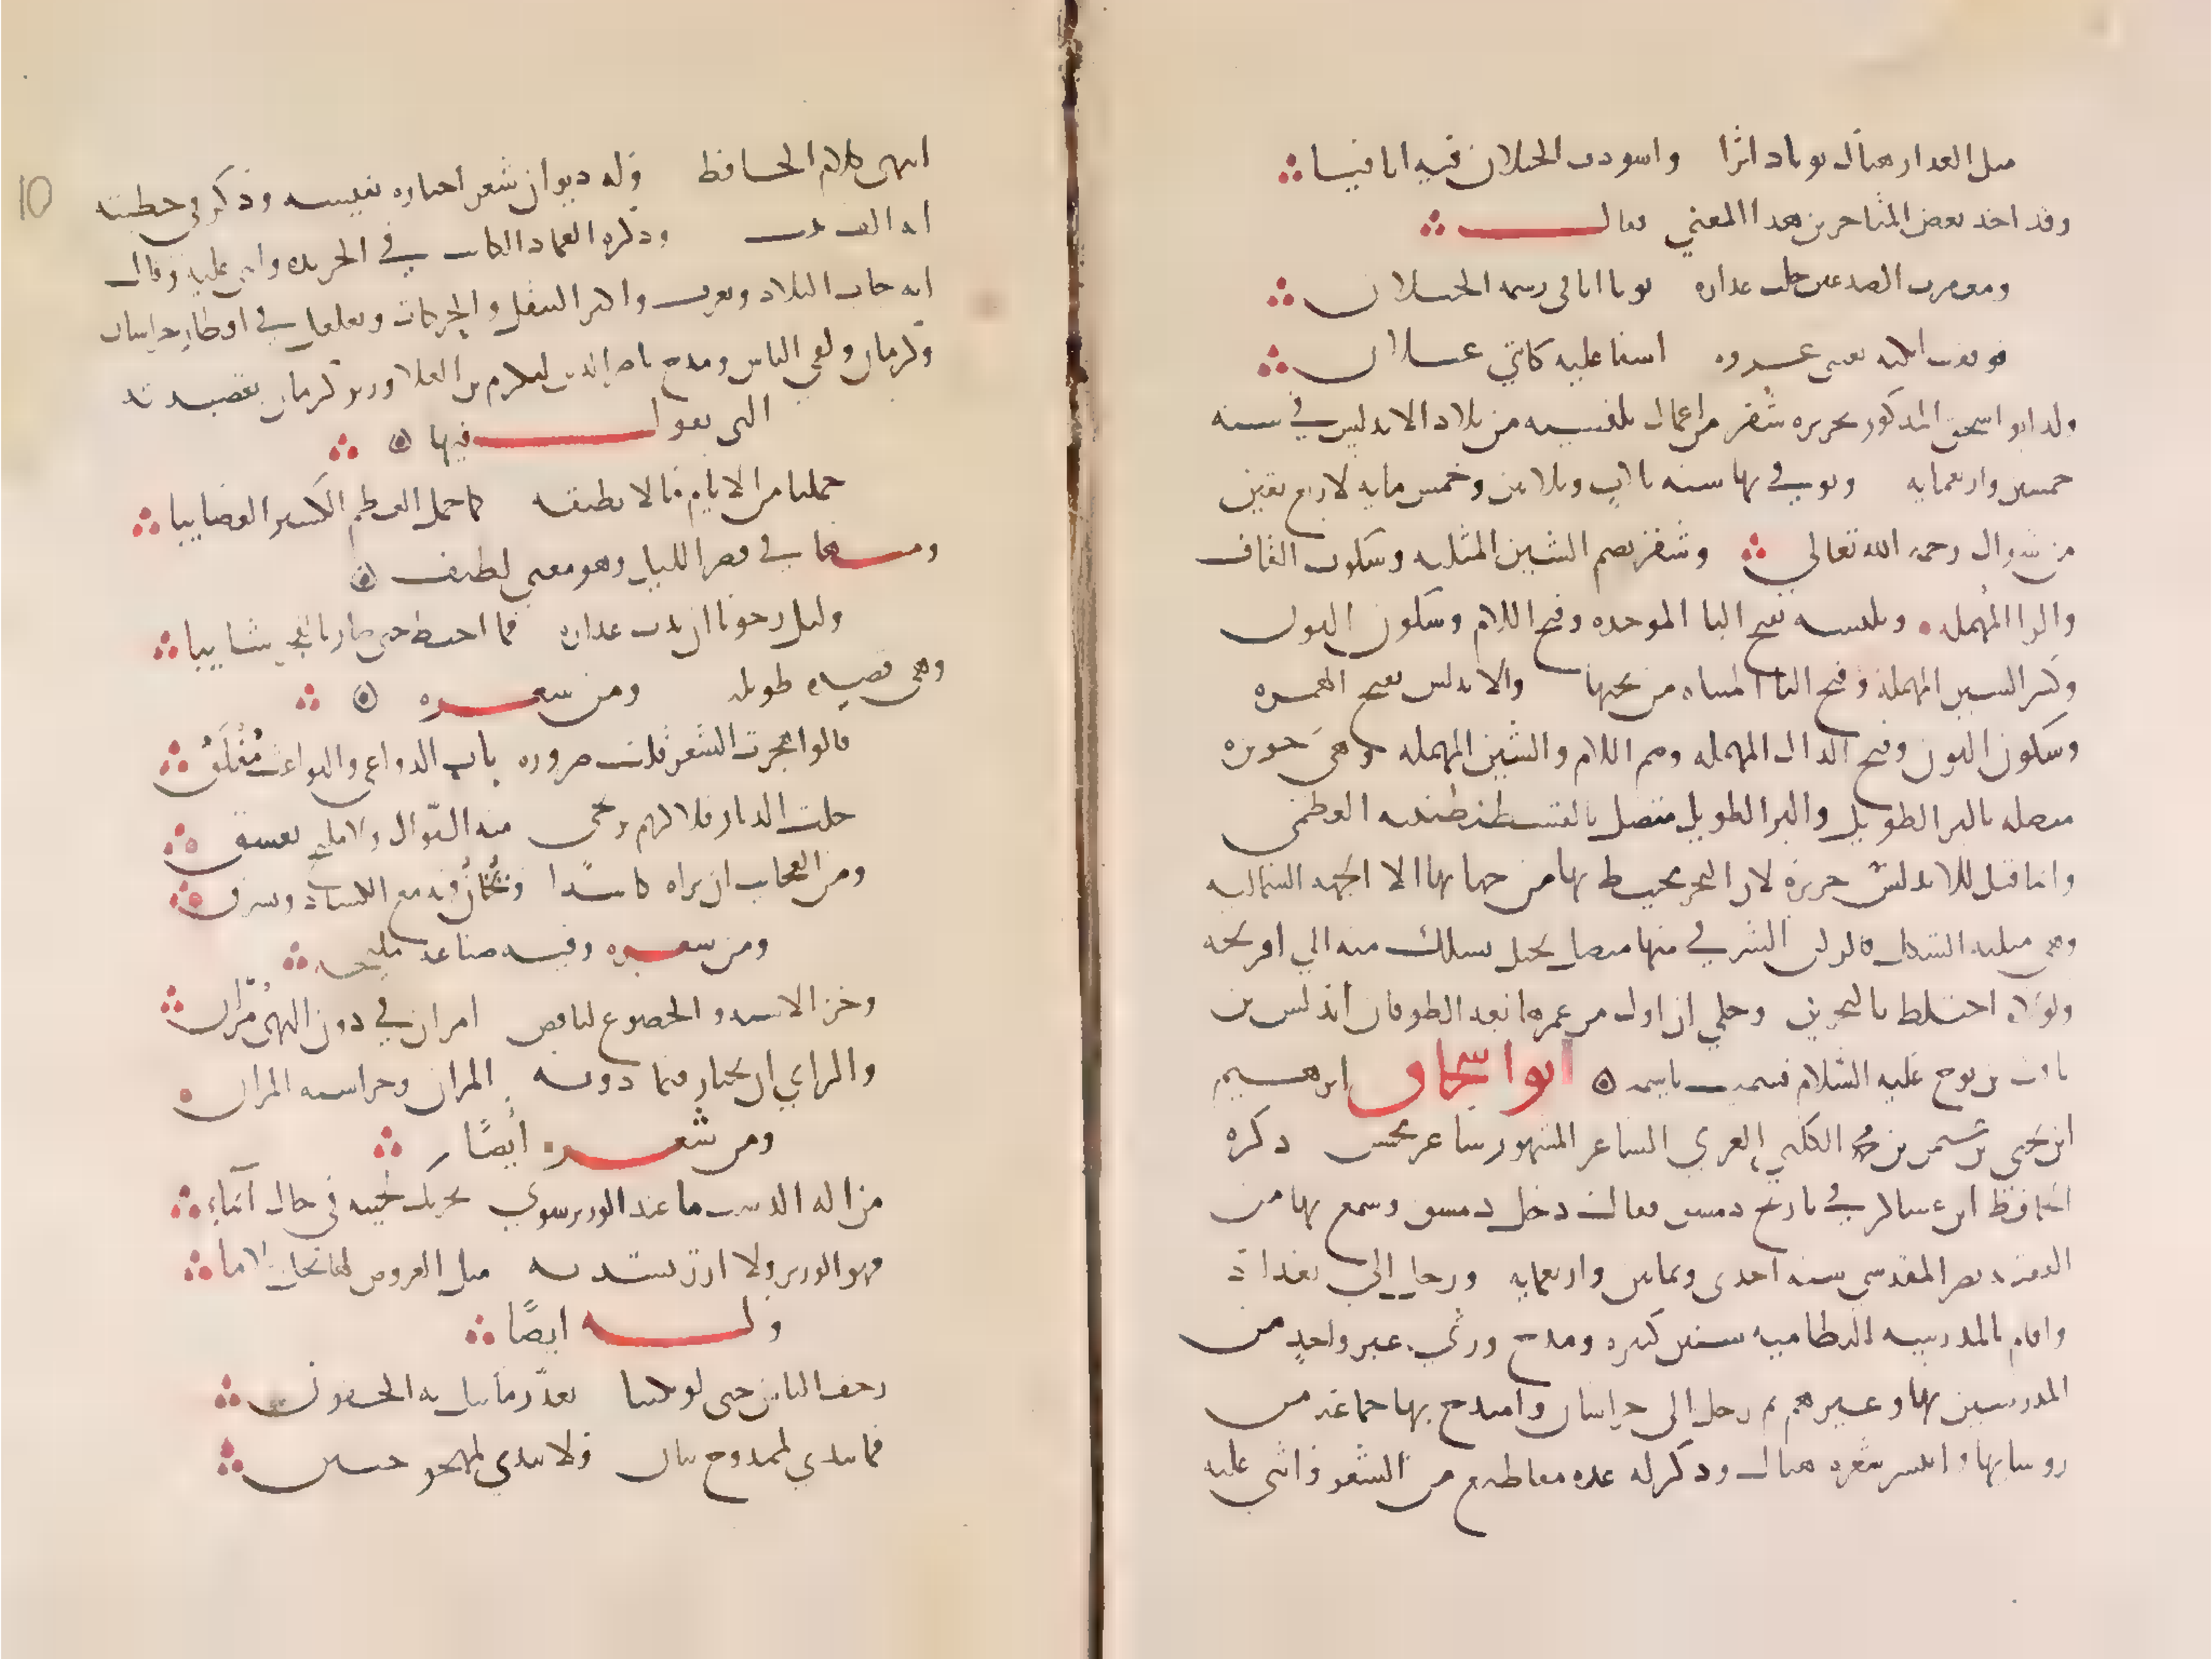 مثل العذار هناك نونا داثرا واسودت الخيلان فيه اثافيا
وقد اخذ بعض المتاخرين هذا المعنى فقال
ومعقرب الصدغين خلت عذاره نونا اثافي رسمه الخيلان
فوقفت اسفا عليه كانني غيلان
ولد ابو اسحق المذكور بجزيره شقر من اعمال بلنسيه من بلاد الاندلس في سنه
خمسين واربعمايه وتوفي بها سنه ثلاث وثلاثين وخمس مايه لاربع بقين
من شوال رحمه الله تعالي وشقر بضم الشين المثلثه وسكون القاف
والرا المهمله وبلنسيه بفتح البا الموحده وفتح اللام وسكون النون
وكسر السين المهمله وفتح اليا المثناه من تحتها والاندلس بفتح الهمزه
وسكون النون وفتح الدال المهمله وضم اللام والسين المهمله وهي جزيره
متصله بالبر الطويل والبر الطويل متصل بالقسطنطينيه العظمى
وانما قيل للاندلس جزيرة لان البحر يحيط بها من جهاتها الا الجهه الشماليه
وهي مثلثه الشكل فالركن الشرقي منها متصل بجبل يسلك منه الي افرنجه
ولولاه اختلط البحرين وحكي ان اول من عمرها بعد الطوفان اندلس بن
يافث بن نوح عليه السلام فسميت باسمه ابو اسحاق ابرهيم
ابن يحيى بن عثمن بن محمد الكلبي الغزي الشاعر المشهور شاعر محسن ذكره
الحافظ ابن عساكر في تاريخ دمشق فقال دخل دمشق وسمع بها من
الفقيه نصر المقدسي سنه احدى وثمانين واربعمايه ورحل الي بغداد
واقام بالمدرسه النظاميه سنين كثيره ومدح ورثي غير واحد من
المدرسين بها وغيرهم ثم رحل الى خراسان وامتدح بها جماعه من
روسايها وانتشر شعره هناك وذكر له عده مقاطيع من الشعر واثنى عليه
انتهى كلام الحافظ وله ديوان شعر اختاره لنفسه وذكر في خطبته
انه الف بيت وذكره العماد الكاتب في الخريده واثنى عليه وقال
انه جاب البلاد وتغرب واكثر النقل والحركات وتغلغل في اقطار خراسان
وكرمان ولقي الناس ومدح ناصر الدين مكرم بن العلا وزير كرمان بقصيدته
التي يقول فيها
حملنا من الايام ما لا نطيقه كما حمل العظم الكسير العصايبا
ومنها في قصر الليل وهو معنى لطيف
وليل رجونا ان يدب عذاره فما اختط حتى صار بالفجر شايبا
وهي قصيده طويله ومن شعره
قالوا هجرت الشعر قلت ضروره باب الدواعي والبواعث مُغْلَقُ
خلت الديار فلا كريم يرتجى منه النوال ولا مليح يعشق
ومن العجايب ان يراه كاسدًا ويُخان فيه مع الكساد ويسرق
ومن شعره وفيه صناعه مليحه
وخز الاسنه والخضوع لناقص امران في دون النهى مُرّان
والراي ان يختار فيما دونه المران وخز اسنه المران
ومن شعره أيضًا
من اله الدست ما عند الوزير سوي تحريك لحيته في حال ايماء
فهو الوزير ولا ازر يشد به مثل العروض لها بحر بلا ما
وله ايضًا
وجف الناس حتى لو بكينا تعذّر ما تبل به الجفون
فما يندي لممدوح بنان ولا يندي لمهجو جبين